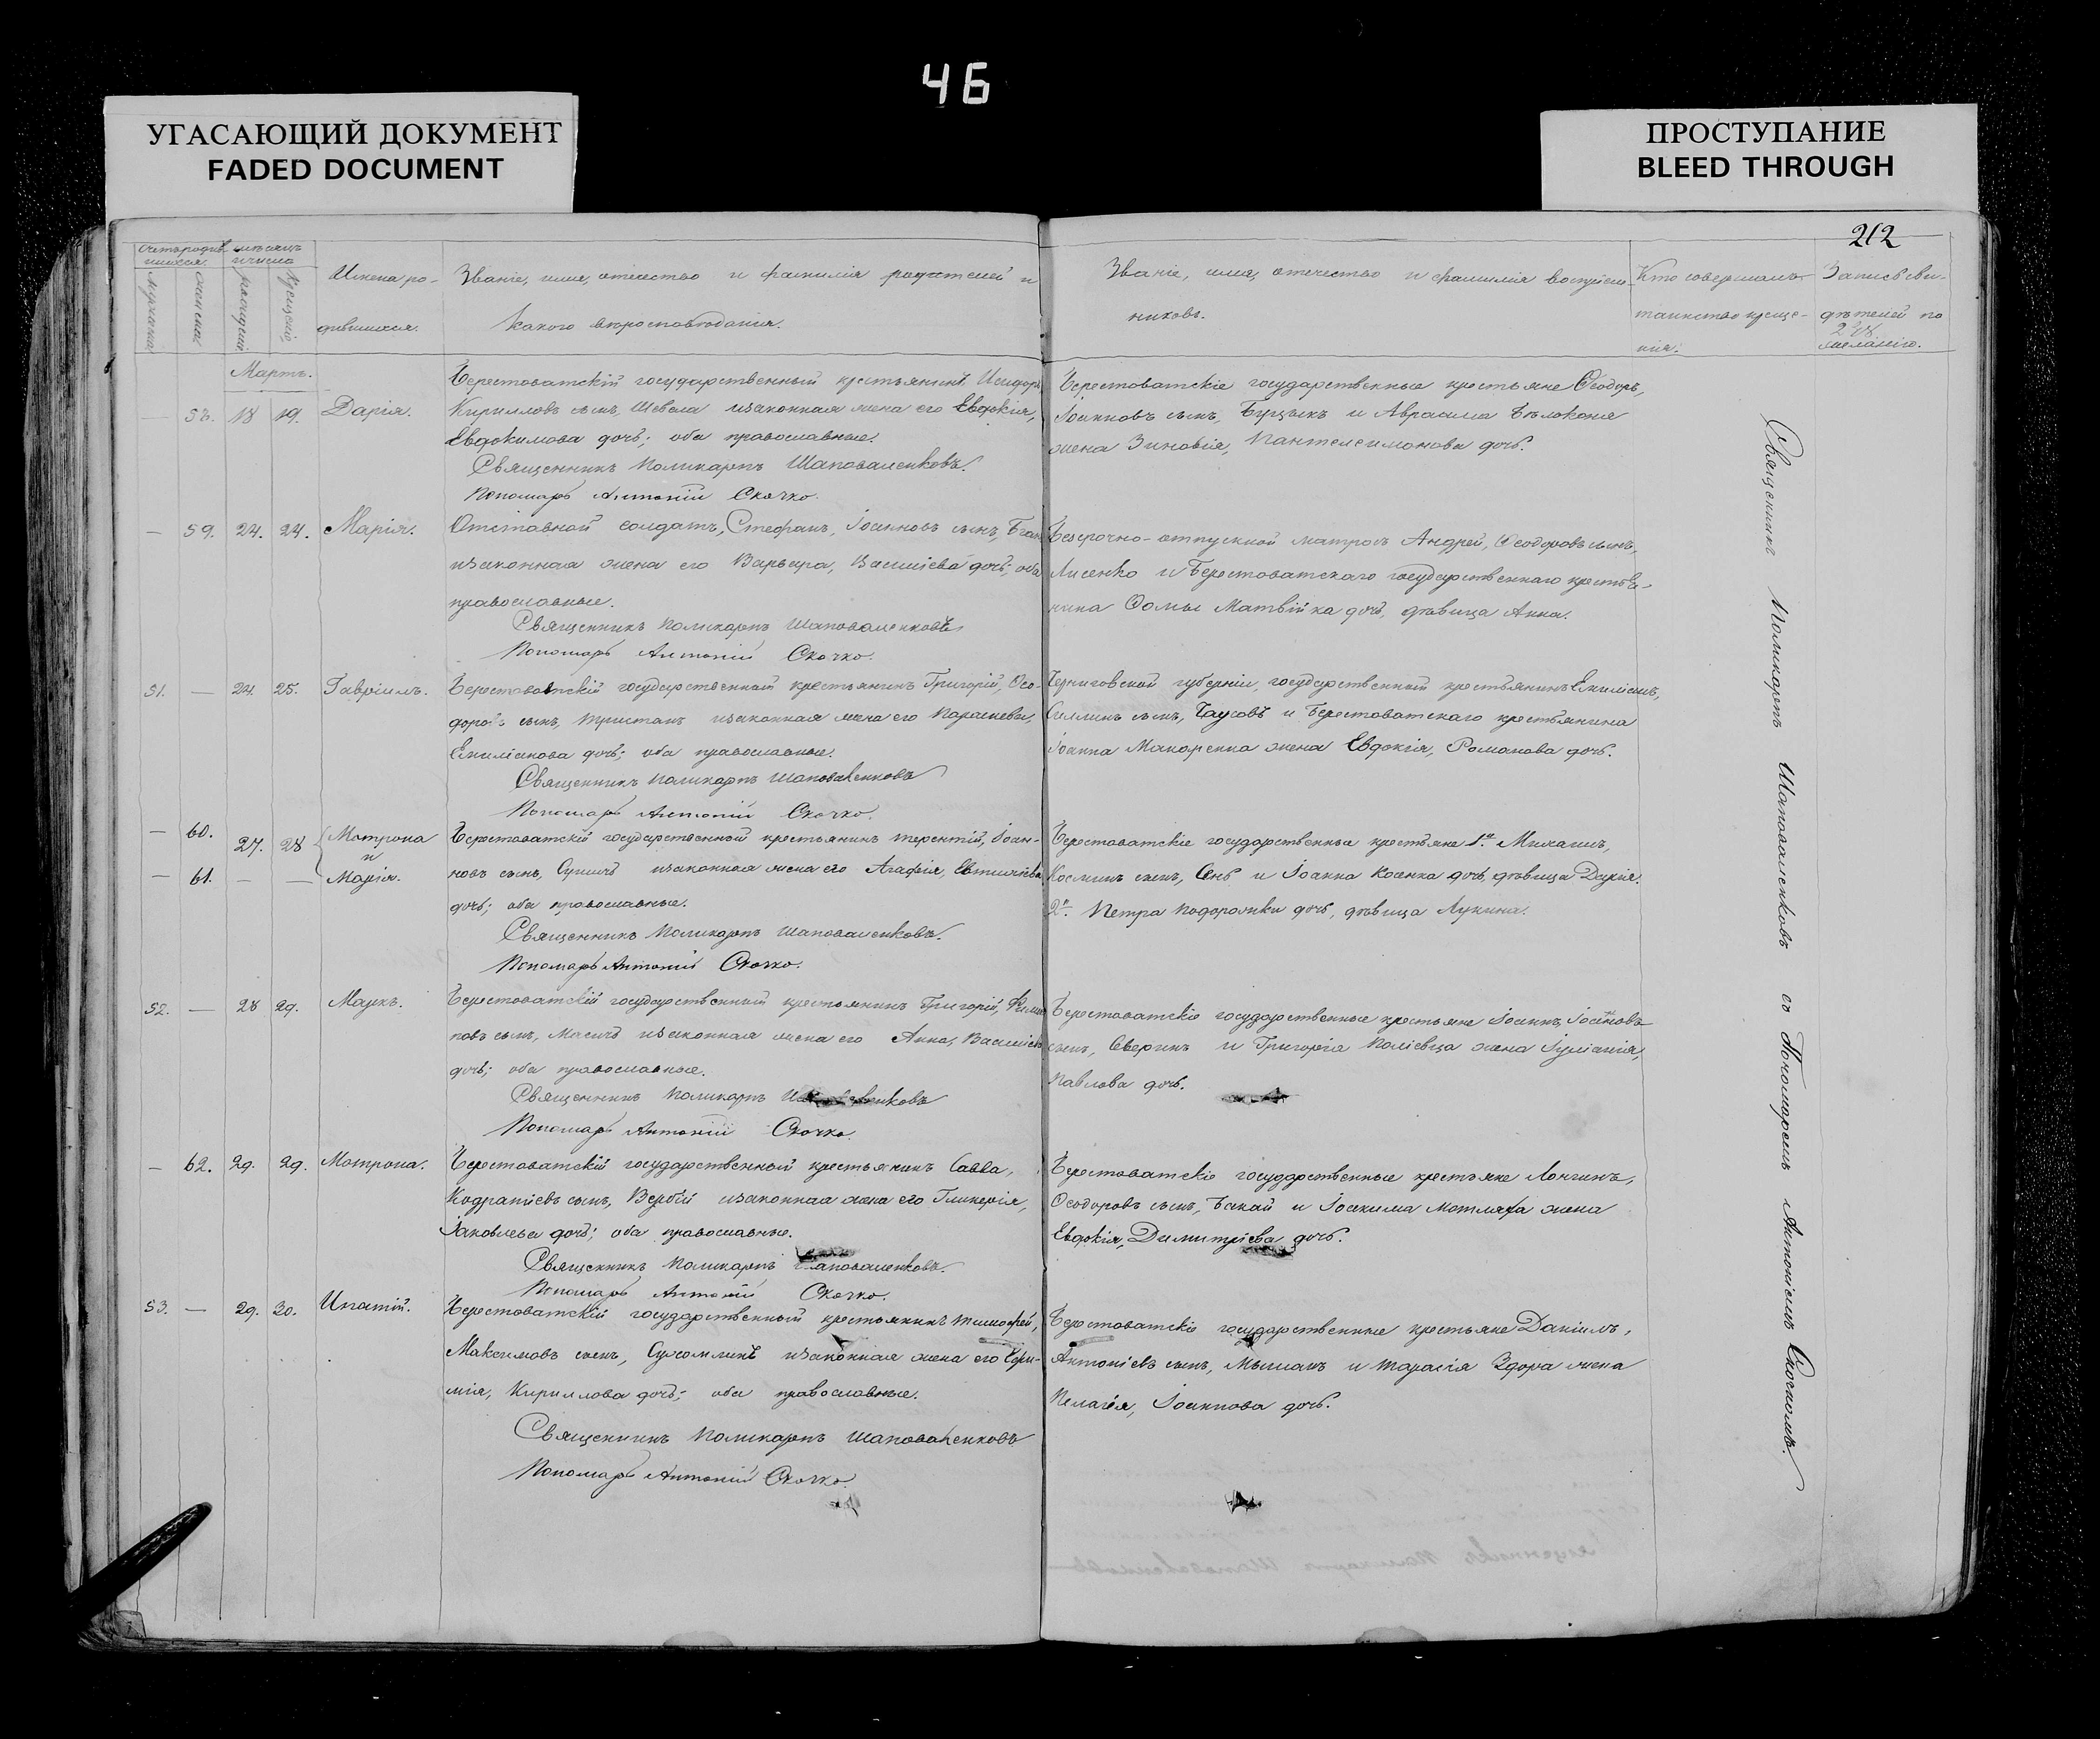 46
УГАСАЮЩИЙ ДОКУМЕНТ
FADED DOCUMENT
ПРОСТУПАНИЕ
BLEED THROUGH
212
Имена ро-
дившихся.
Званіе, имя, отчество и фамилія родителей и
какого вѣроисповѣданія.
Званіе, имя, отчество и фамилія воспріем-
никовъ.
Кто совершалъ
таинство креще-
нія.
Запись сви-
дѣтелей по
желанію.
Мартъ.
— 58. 18 19. Дарія.
Берестоватскій государственный крестьянинъ Исидоръ
Кирилловъ сынъ, Шевела изаконная жена его Евдокія,
Евдокимова дочь; оба православные.
Священникъ Поликарпъ Шаповаленковъ.
Пономарь Антоній Скочко.
Берестоватскіе государственные крестьяне Ѳеодоръ,
Іоанновъ сынъ, и Авраама Бѣлоконя
жена Зиновія, Пантелеимонова дочь.
— 59. 24. 24. Марія.
Отставной солдатъ, Стефанъ, Іоанновъ сынъ,
изаконная жена его Варвара, Василіева дочь; оба
православные.
Священникъ Поликарпъ Шаповаленковъ
Пономарь Антоній Скочко.
Безсрочно-отпускной матросъ Андрей, Ѳеодоровъ сынъ,
Лисенко и Берестоватскаго государственнаго крестья-
нина Ѳомы Матвійка дочь, дѣвица Анна.
51. — 24. 25. Гавріилъ.
Берестоватскій государственный крестьянинъ Григорій, Ѳео-
доровъ сынъ, Тристанъ изаконная жена его Параскева,
Емиліанова дочь; оба православные.
Священникъ Поликарпъ Шаповаленковъ
Пономарь Антоній Скочко.
Черниговской губерніи, государственный крестьянинъ Емиліанъ,
сынъ, Чаусовъ и Берестоватскаго крестьянина
Іоанна Макаренка жена Евдокія, Романова дочь.
— 60. 27. 28 Мотрона
и
— 61. — — Марія.
Берестоватскій государственный крестьянинъ Терентій, Іоан-
новъ сынъ, изаконная жена его Агафія,
дочь; оба православные.
Священникъ Поликарпъ Шаповаленковъ.
Пономарь Антоній Скочко.
Берестоватскіе государственные крестьяне 1.а Михаилъ,
Косминъ сынъ, и Іоанна Косенка дочь, дѣвица Дарія.
2.я Петра Подорожки дочь, дѣвица Лукина.
52. — 28 29. Маркъ.
Берестоватскій государственный крестьянинъ Григорій, Фили-
повъ сынъ, изаконная жена его Анна, Василіева
дочь; оба православные.
Священникъ Поликарпъ Шаповаленковъ
Пономарь Антоній Скочко.
Берестоватскіе государственные крестьяне Іоаннъ, Іоанновъ
сынъ, Сверинъ и Григорія жена Іуліанія,
Павлова дочь.
— 62. 29. 29. Мотрона.
Берестоватскій государственный крестьянинъ Савва,
Кодратіевъ сынъ, Вербій изаконная жена его Гликерія,
Іаковлева дочь; оба православные.
Священникъ Поликарпъ Шаповаленковъ.
Пономарь Антоній Скочко.
Берестоватскіе государственные крестьяне Лонгинъ,
Ѳеодоровъ сынъ, Бакай и Іоакима Мотляха жена
Евдокія, Димитріева дочь.
53. — 29. 30. Ипатій.
Берестоватскій государственный крестьянинъ Тимофей,
Максимовъ сынъ, Сухомлинъ изаконная жена его Евфи-
мія, Кириллова дочь; оба православные.
Священникъ Поликарпъ Шаповаленковъ
Пономарь Антоній Скочко.
Берестоватскіе государственные крестьяне Даніилъ,
Антоніевъ сынъ, и Тарасія Здора жена
Пелагея, Іоаннова дочь.
Священникъ Поликарпъ Шаповаленковъ съ Пономаремъ Антоніемъ Скочкомъ.